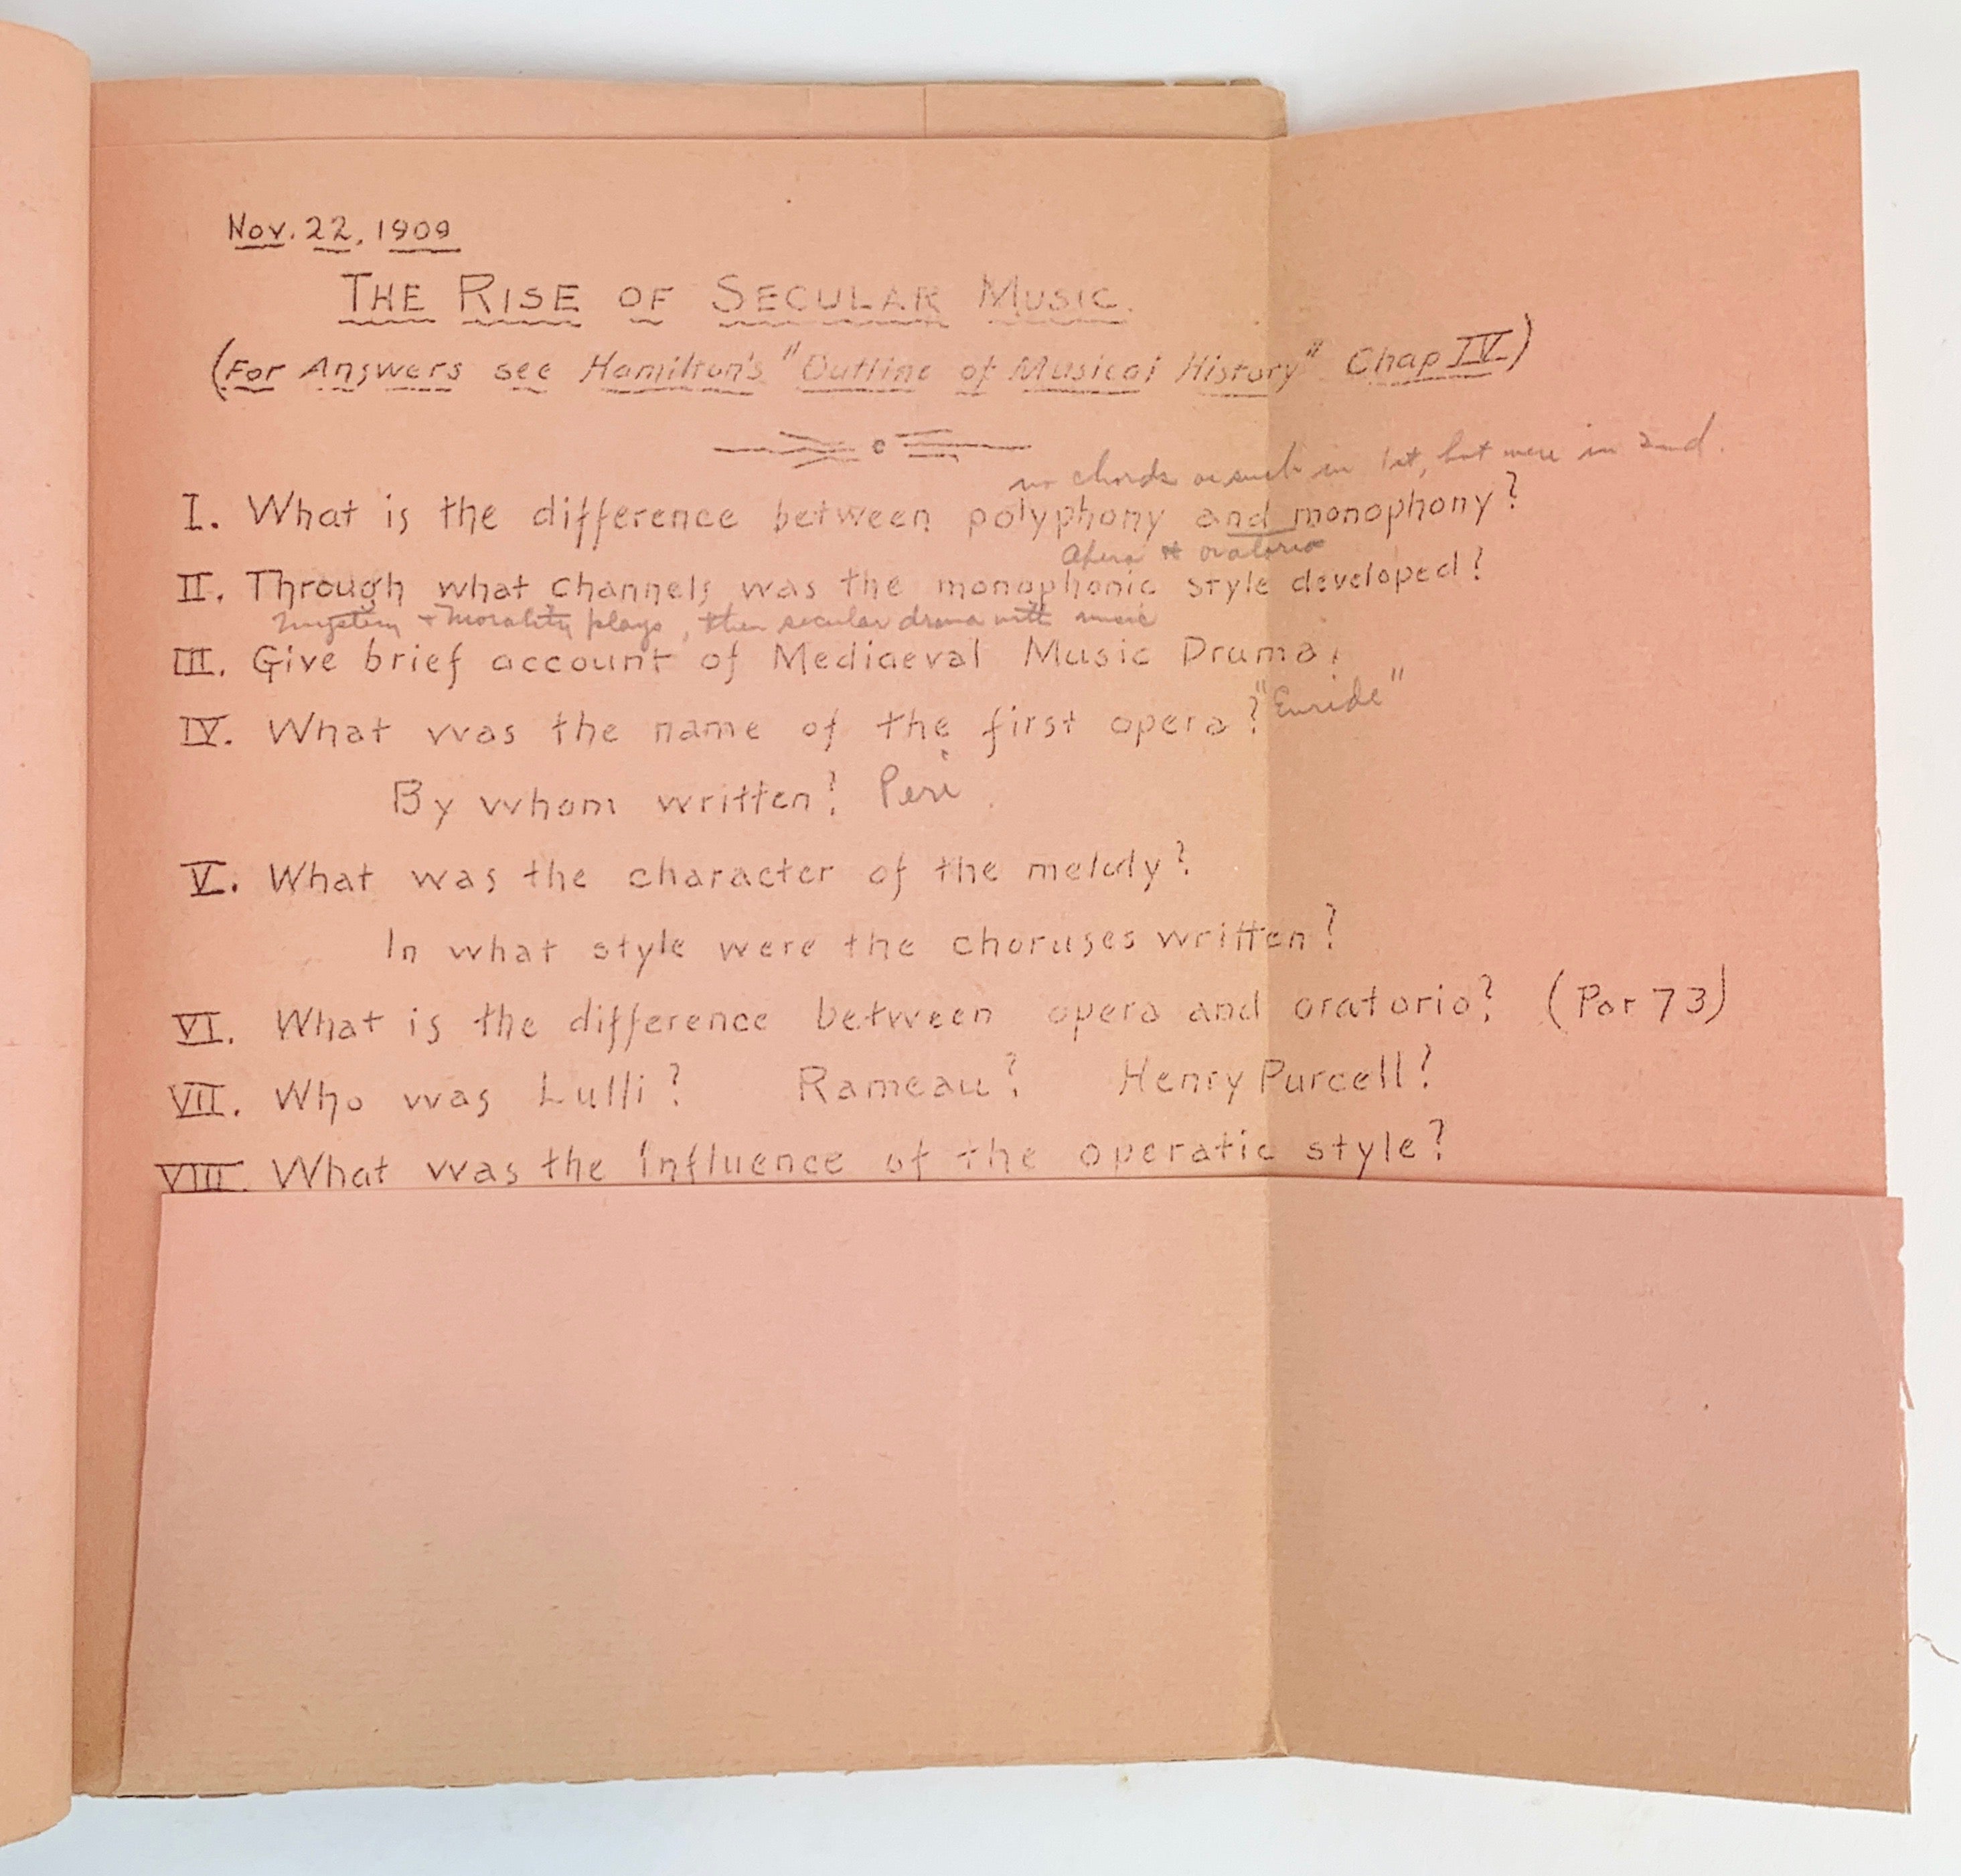 Nov. 22, 1909
THE RISE OF SECULAR MUSIC.
(For Answers see Hamilton's "Outline of Musical History" Chap IV)
no chords as such in 1st, but were in 2nd.
I. What is the difference between polyphony and monophony?
Opera & oratorio
II. Through what channels was the monophonic style developed?
mystery & morality plays, then secular drama with music
III. Give brief account of Mediaeval Music Drama.
IV. What was the name of the first opera? "Euride"
By whom written? Peri.
V. What was the character of the melody?
In what style were the choruses written?
VI. What is the difference between opera and oratorio? (Par 73)
VII. Who was Lulli? Rameau? Henry Purcell?
VIII. What was the influence of the operatic style?